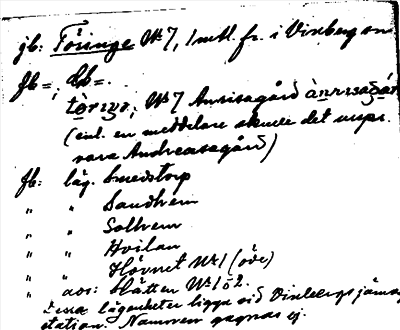 jb: Töringe No 7, 1 mtl. fr. i Vinberg sn
Jb =; Db =.
No 7 Anrisagård
(enl. en meddelare skulle det urspr.
vara Andreasagård)
Jb: läg. Smedstorp
" " Sandhem
" " Solhem
" " Hvilan
" " Hörnet No 1 (öde)
" avs: Slätten No 1 o 2.
Dessa lägenheter ligga vid Vinbergs järnvägs
station. Namnen sägnas ej.